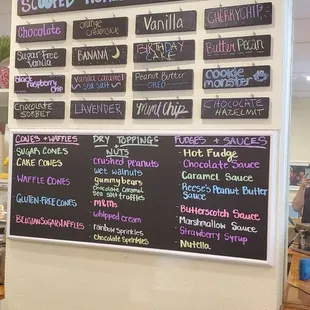 SCOOPED
Chocolate
ORANGE
CREAMSICLE
Vanilla
CHERRY CHIP
SUGAR-FREE
VANILLA
BANANA
BIRTHDAY
CAKE
Butter Pecan
black
raspberry
VANILLA CARAMEL
SEA SALT
PEANUT BUTTER
OREO
COOKIE
MONSTER
CHOCOLATE
SORBET
LAVENDER
MINT CHIP
CHOCOLATE
HAZELNUT
CONES + WAFFLES
SUGAR CONES
CAKE CONES
WAFFLE CONES
GLUTEN-FREE CONES
BELGIAN SUGAR WAFFLES
DRY TOPPINGS
NUTS
crushed peanuts
wet walnuts
gummy bears
chocolate caramel
sea salt truffles
m&ms
whipped cream
rainbow sprinkles
chocolate sprinkles
FUDGES + SAUCES
Hot Fudge
Chocolate Sauce
Caramel Sauce
Reese's Peanut Butter
Sauce
Butterscotch Sauce
Marshmallow Sauce
Strawberry Syrup
Nutella